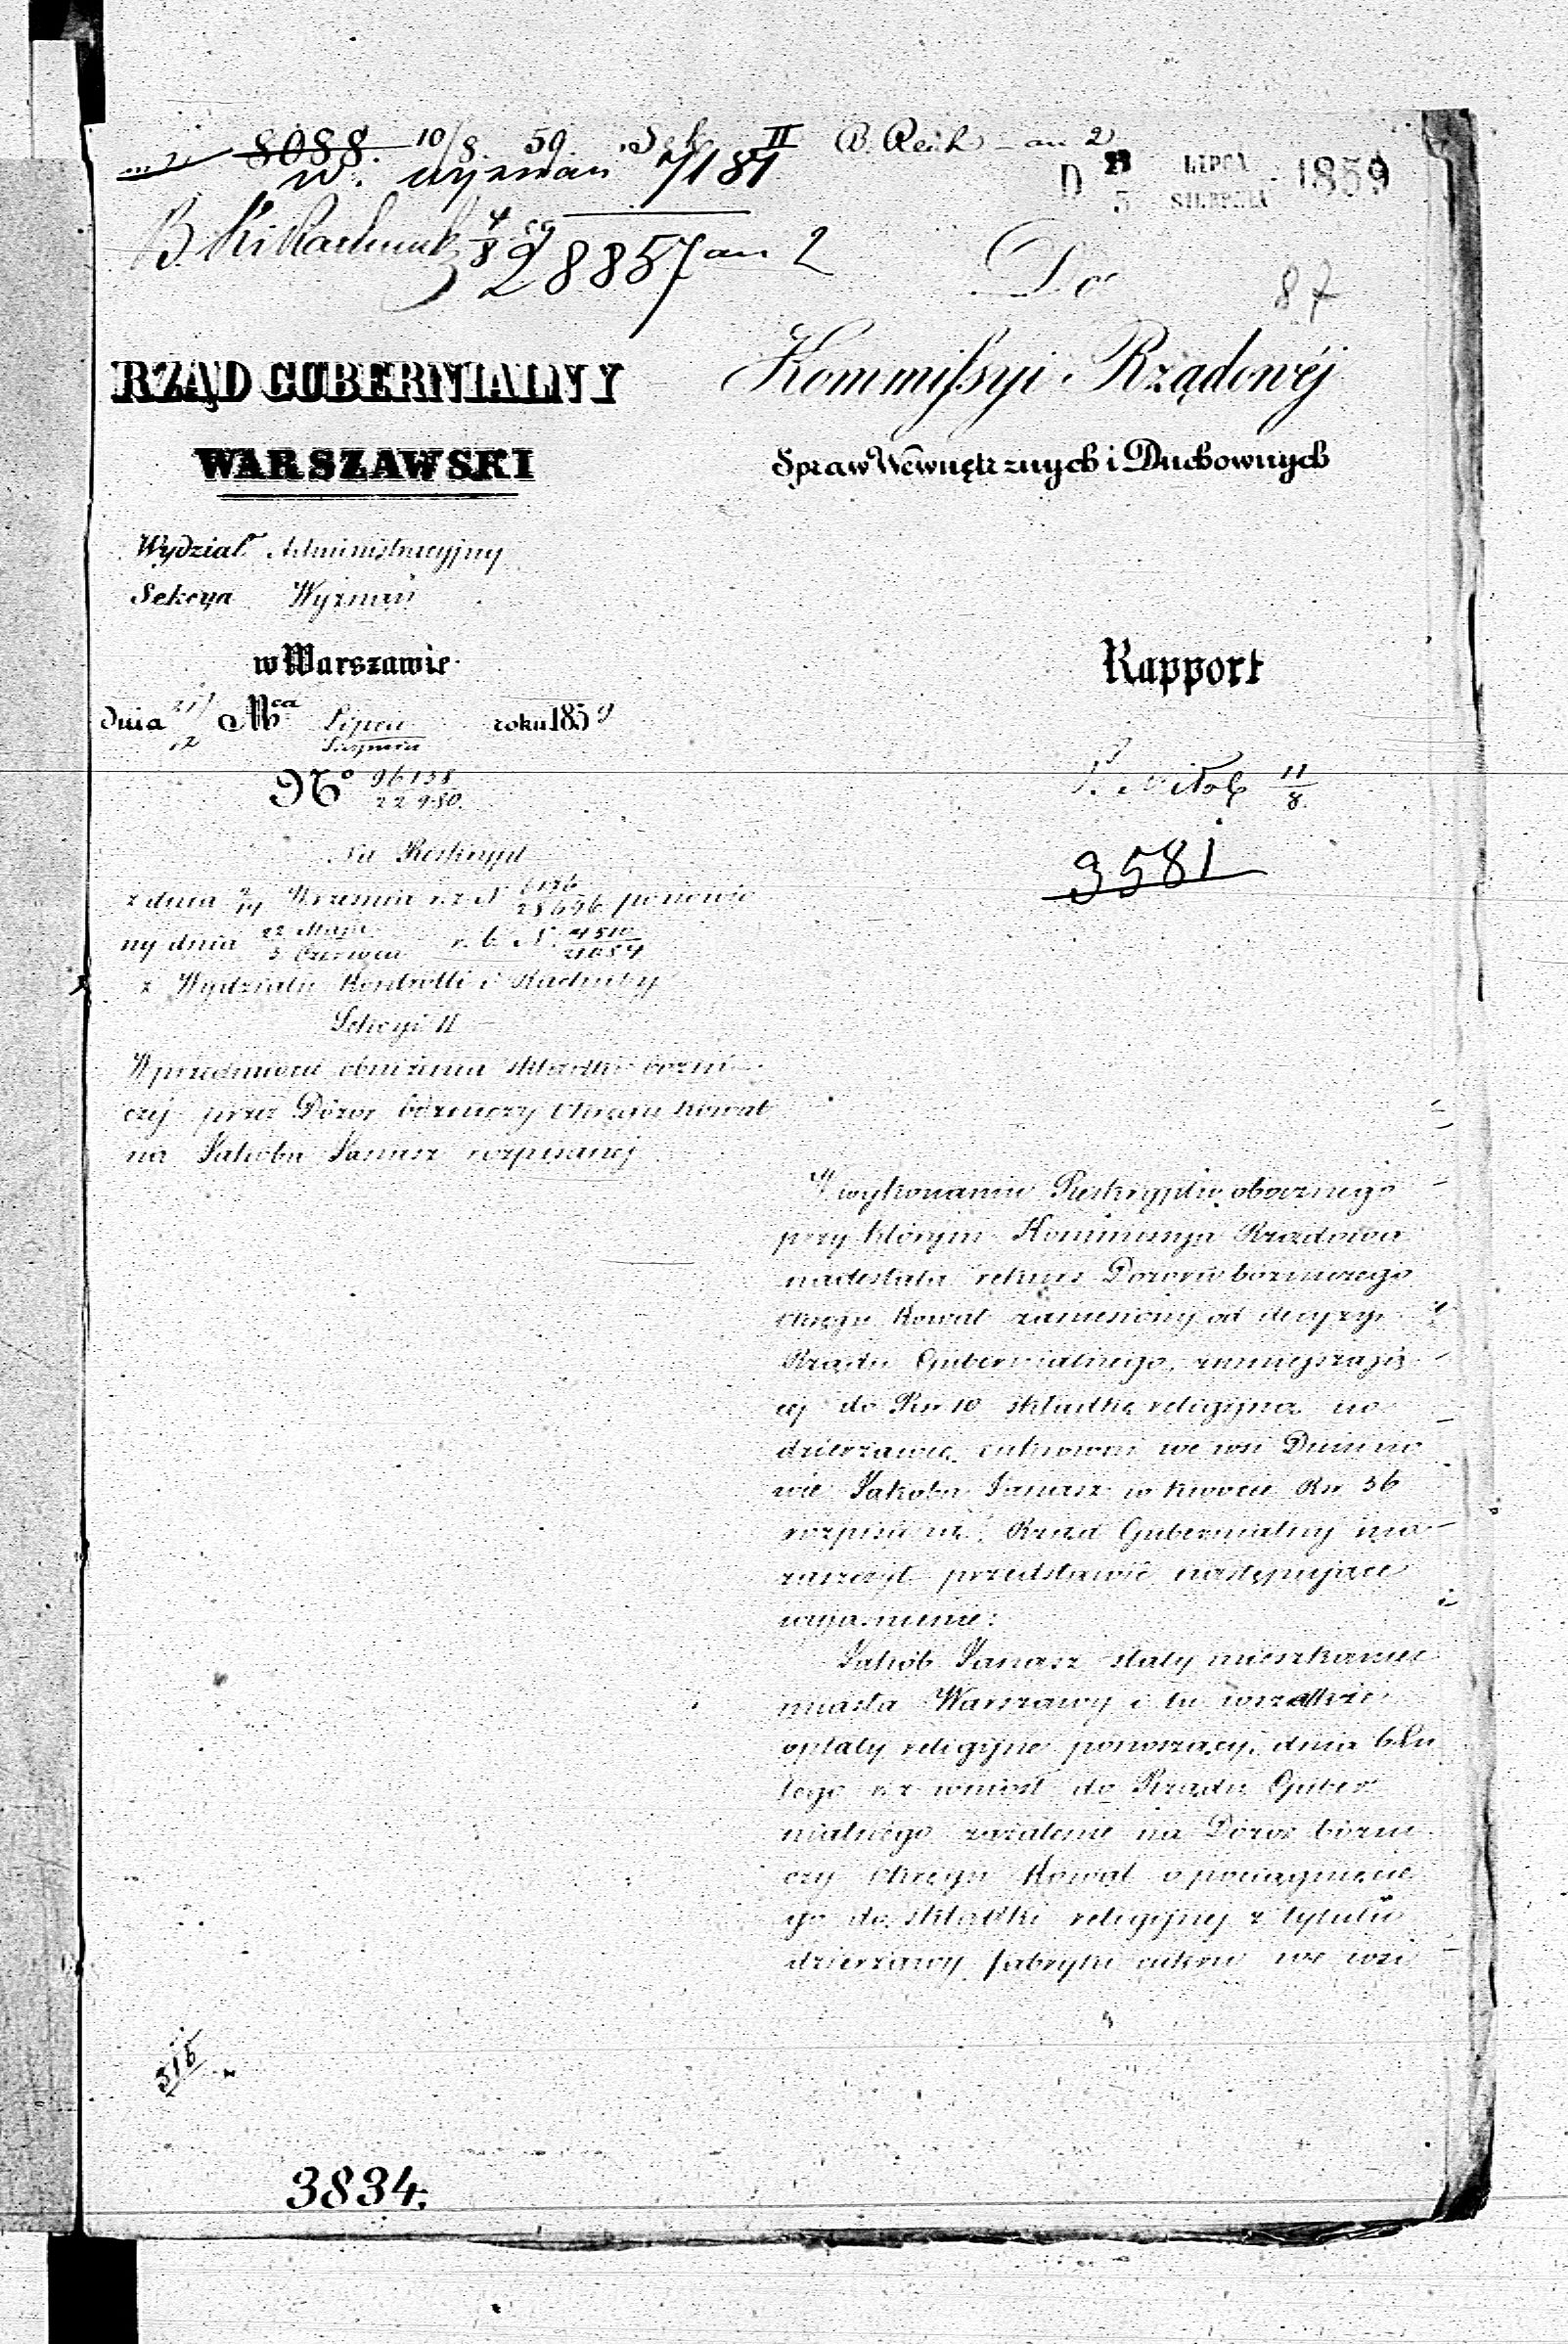 8088. 10/8. 59. Sek. II
w. wyznań 7181
28857 an 2
D 3 LIPCA 1859
SIERPNIA
Do
87
RZĄD GUBERNIALNY
WARSZAWSKI
Kommissyi Rządowéj
Spraw Wewnętrznych i Duchownych
Wydział Administracyjny
Sekcya Wyznań
w Warszawie
Rapport
dnia Mca Lipca roku 1859
Sierpnia
No 96138
22980.
11/8
3581
Na Reskrypt
z dnia 2/14 Września r. z. N 28696 ponowio
ny dnia 22 Maja r. b. N. 4510
3 Czerwca 21054
z Wydziału Kontrolli i Rachuby
Sekcyi II
W przedmiocie obniżenia składki bożni
czej przez Dozór bóżniczy Okręgu Kowal
na Jakóba Janasz rozpisanej
W wykonaniu Reskryptu obocznego
przy którym Kommissya Rządowa
nadesłała rekurs Dozoru bóżniczego
Okręgu Kowal zaniesiony od decyzyi
Rządu Gubernialnego, zmniejszają
cej do Rs. 10 składkę religijną na
dzierżawcę cukrowni we wsi Duninо
wie Jakóba Janasz w kwocie Rs. 36
rozpisaną, Rząd Gubernialny ma
zaszczyt przedstawić następujące
wyjaśnienie:
Jakób Janasz stały mieszkaniec
miasta Warszawy i tu wszelkie
opłaty religijne ponoszący, dnia 6 Lu
tego r. z. wniósł do Rządu Guber
nialnego zażalenie na Dozór bóżni
czy Okręgu Kowal o pociągnięcie
go do składki religijnej z tytułu
dzierżawy fabryki cukru we wsi
315
3834.